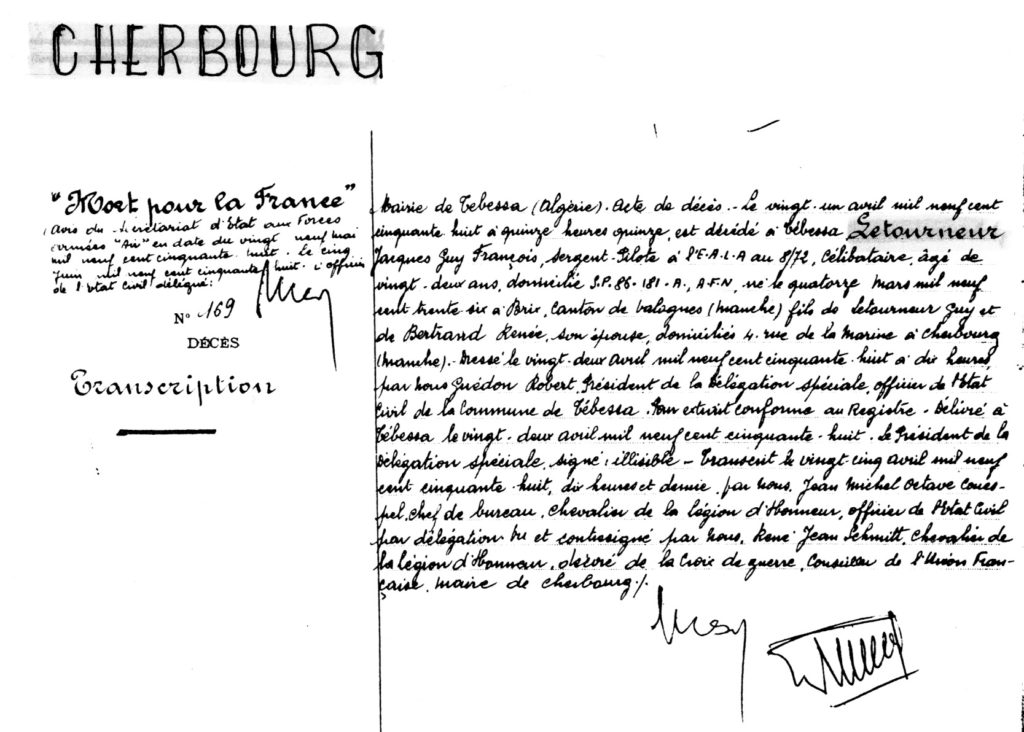 CHERBOURG
"Mort pour la France"
(Avis du Secrétariat d'Etat aux Forces
Armées "Air" en date du vingt neuf mai
mil neuf cent cinquante huit. Le cinq
juin mil neuf cent cinquante huit. L'officier
de l'Etat Civil délégué:
N° 169
DÉCÈS
Transcription
Mairie de Tebessa (Algérie). Acte de décès. - Le vingt. un avril mil neuf cent
cinquante huit à quinze heures quinze, est décédé à Tébessa Letourneur
Jacques Guy François, Sergent-Pilote à l'E.A.L.A au 8/72, Célibataire, âgé de
vingt-deux ans, domicilié S.P. 86-181-A, A.F.N, né le quatorze Mars mil neuf
cent trente six à Brix, Canton de Valognes (Manche) fils de Letourneur Guy et
de Bertrand Renée, son épouse, domiciliés 4 rue de la Marine à Cherbourg
(Manche). - Dressé le vingt-deux Avril mil neuf cent cinquante-huit à dix heures,
par Nous Guédon Robert, Président de la Délégation spéciale, officier de l'Etat
Civil de la Commune de Tébessa. Pour extrait conforme au Registre - Délivré à
Tébessa le vingt-deux avril mil neuf cent cinquante-huit. Le Président de la
Délégation spéciale, signé: illisible - Transcrit le vingt cinq avril mil neuf
cent cinquante huit, dix heures et demie, par Nous, Jean Michel Octave Coues-
pel, Chef de bureau, Chevalier de la légion d'Honneur, officier de l'Etat Civil
par délégation. Vu et contresigné par Nous, René Jean Schmitt, Chevalier de
la légion d'Honneur, décoré de la Croix de guerre, Conseiller de l'Union Fran-
çaise, Maire de Cherbourg./.